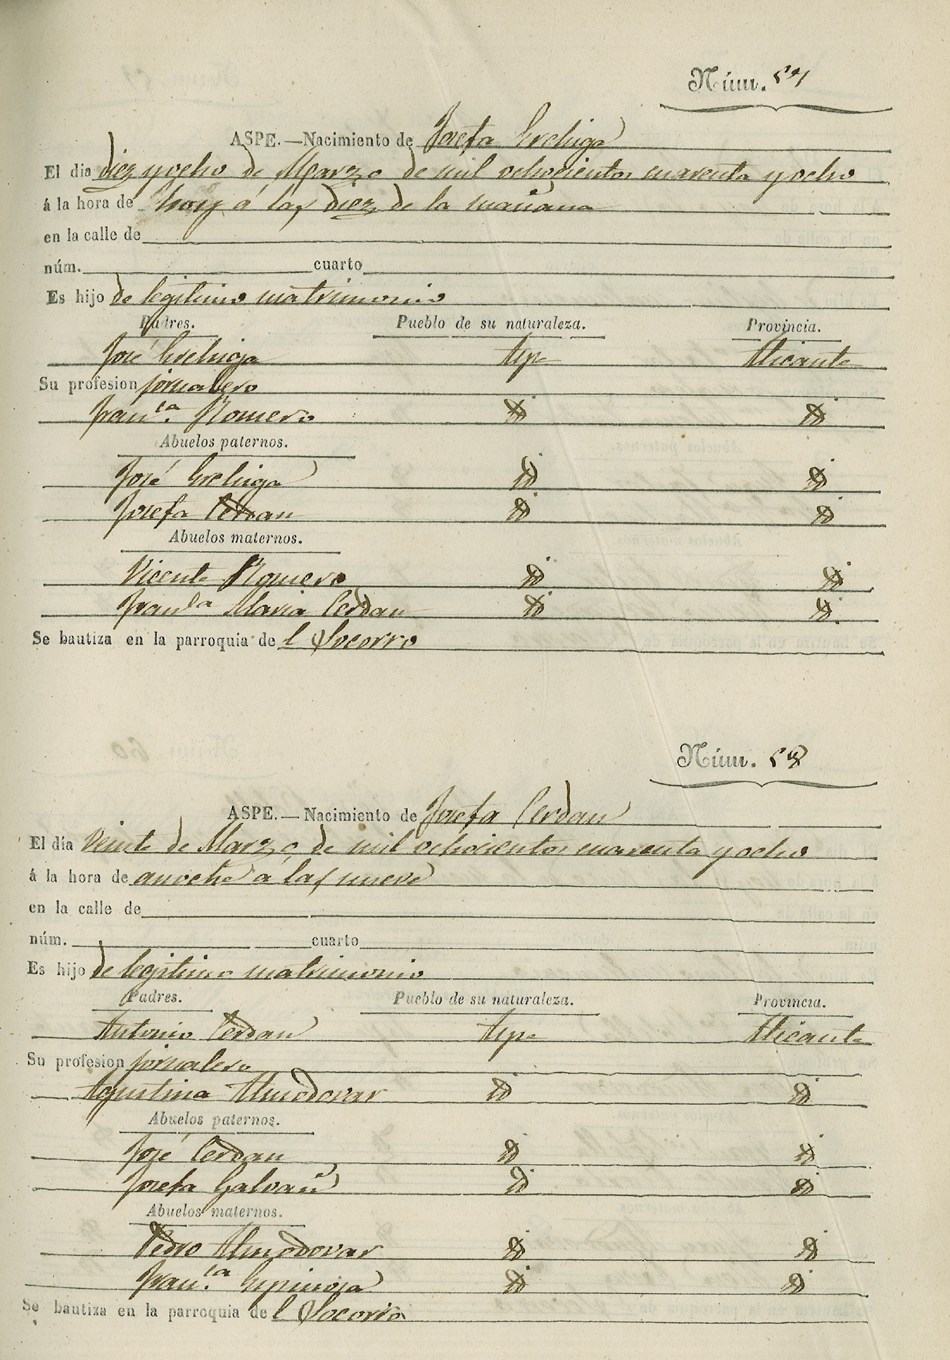 Núm. 57
ASPE.—Nacimiento de Josefa
El dia diez y ocho de Marzo de mil ochocientos cuarenta y ocho
á la hora de hoy á las diez de la mañana
en la calle de
núm. cuarto
Es hijo de legitimo matrimonio
Padres. Pueblo de su naturaleza. Provincia.
José Aspe Alicante
Su profesion jornalero
Fran.ca Romero id id
Abuelos paternos.
José id id
Josefa Cerdan id id
Abuelos maternos.
Vicente Romero id id
Maria Cerdan id id
Se bautiza en la parroquia de l Socorro
Núm. 58
ASPE.—Nacimiento de Josefa Cerdan
El día veinte de Marzo de mil ochocientos cuarenta y ocho
á la hora de anoche a las nueve
en la calle de
núm. cuarto
Es hijo de legitimo matrimonio
Padres. Pueblo de su naturaleza. Provincia.
Antonio Cerdan Aspe Alicante
Su profesion jornalero
Agustina Almodovar id id
Abuelos paternos.
José Cerdan id id
Josefa Galvañ id id
Abuelos maternos.
Pedro Almodovar id id
Fran.ca Espinosa id id
Se bautiza en la parroquia de l Socorro